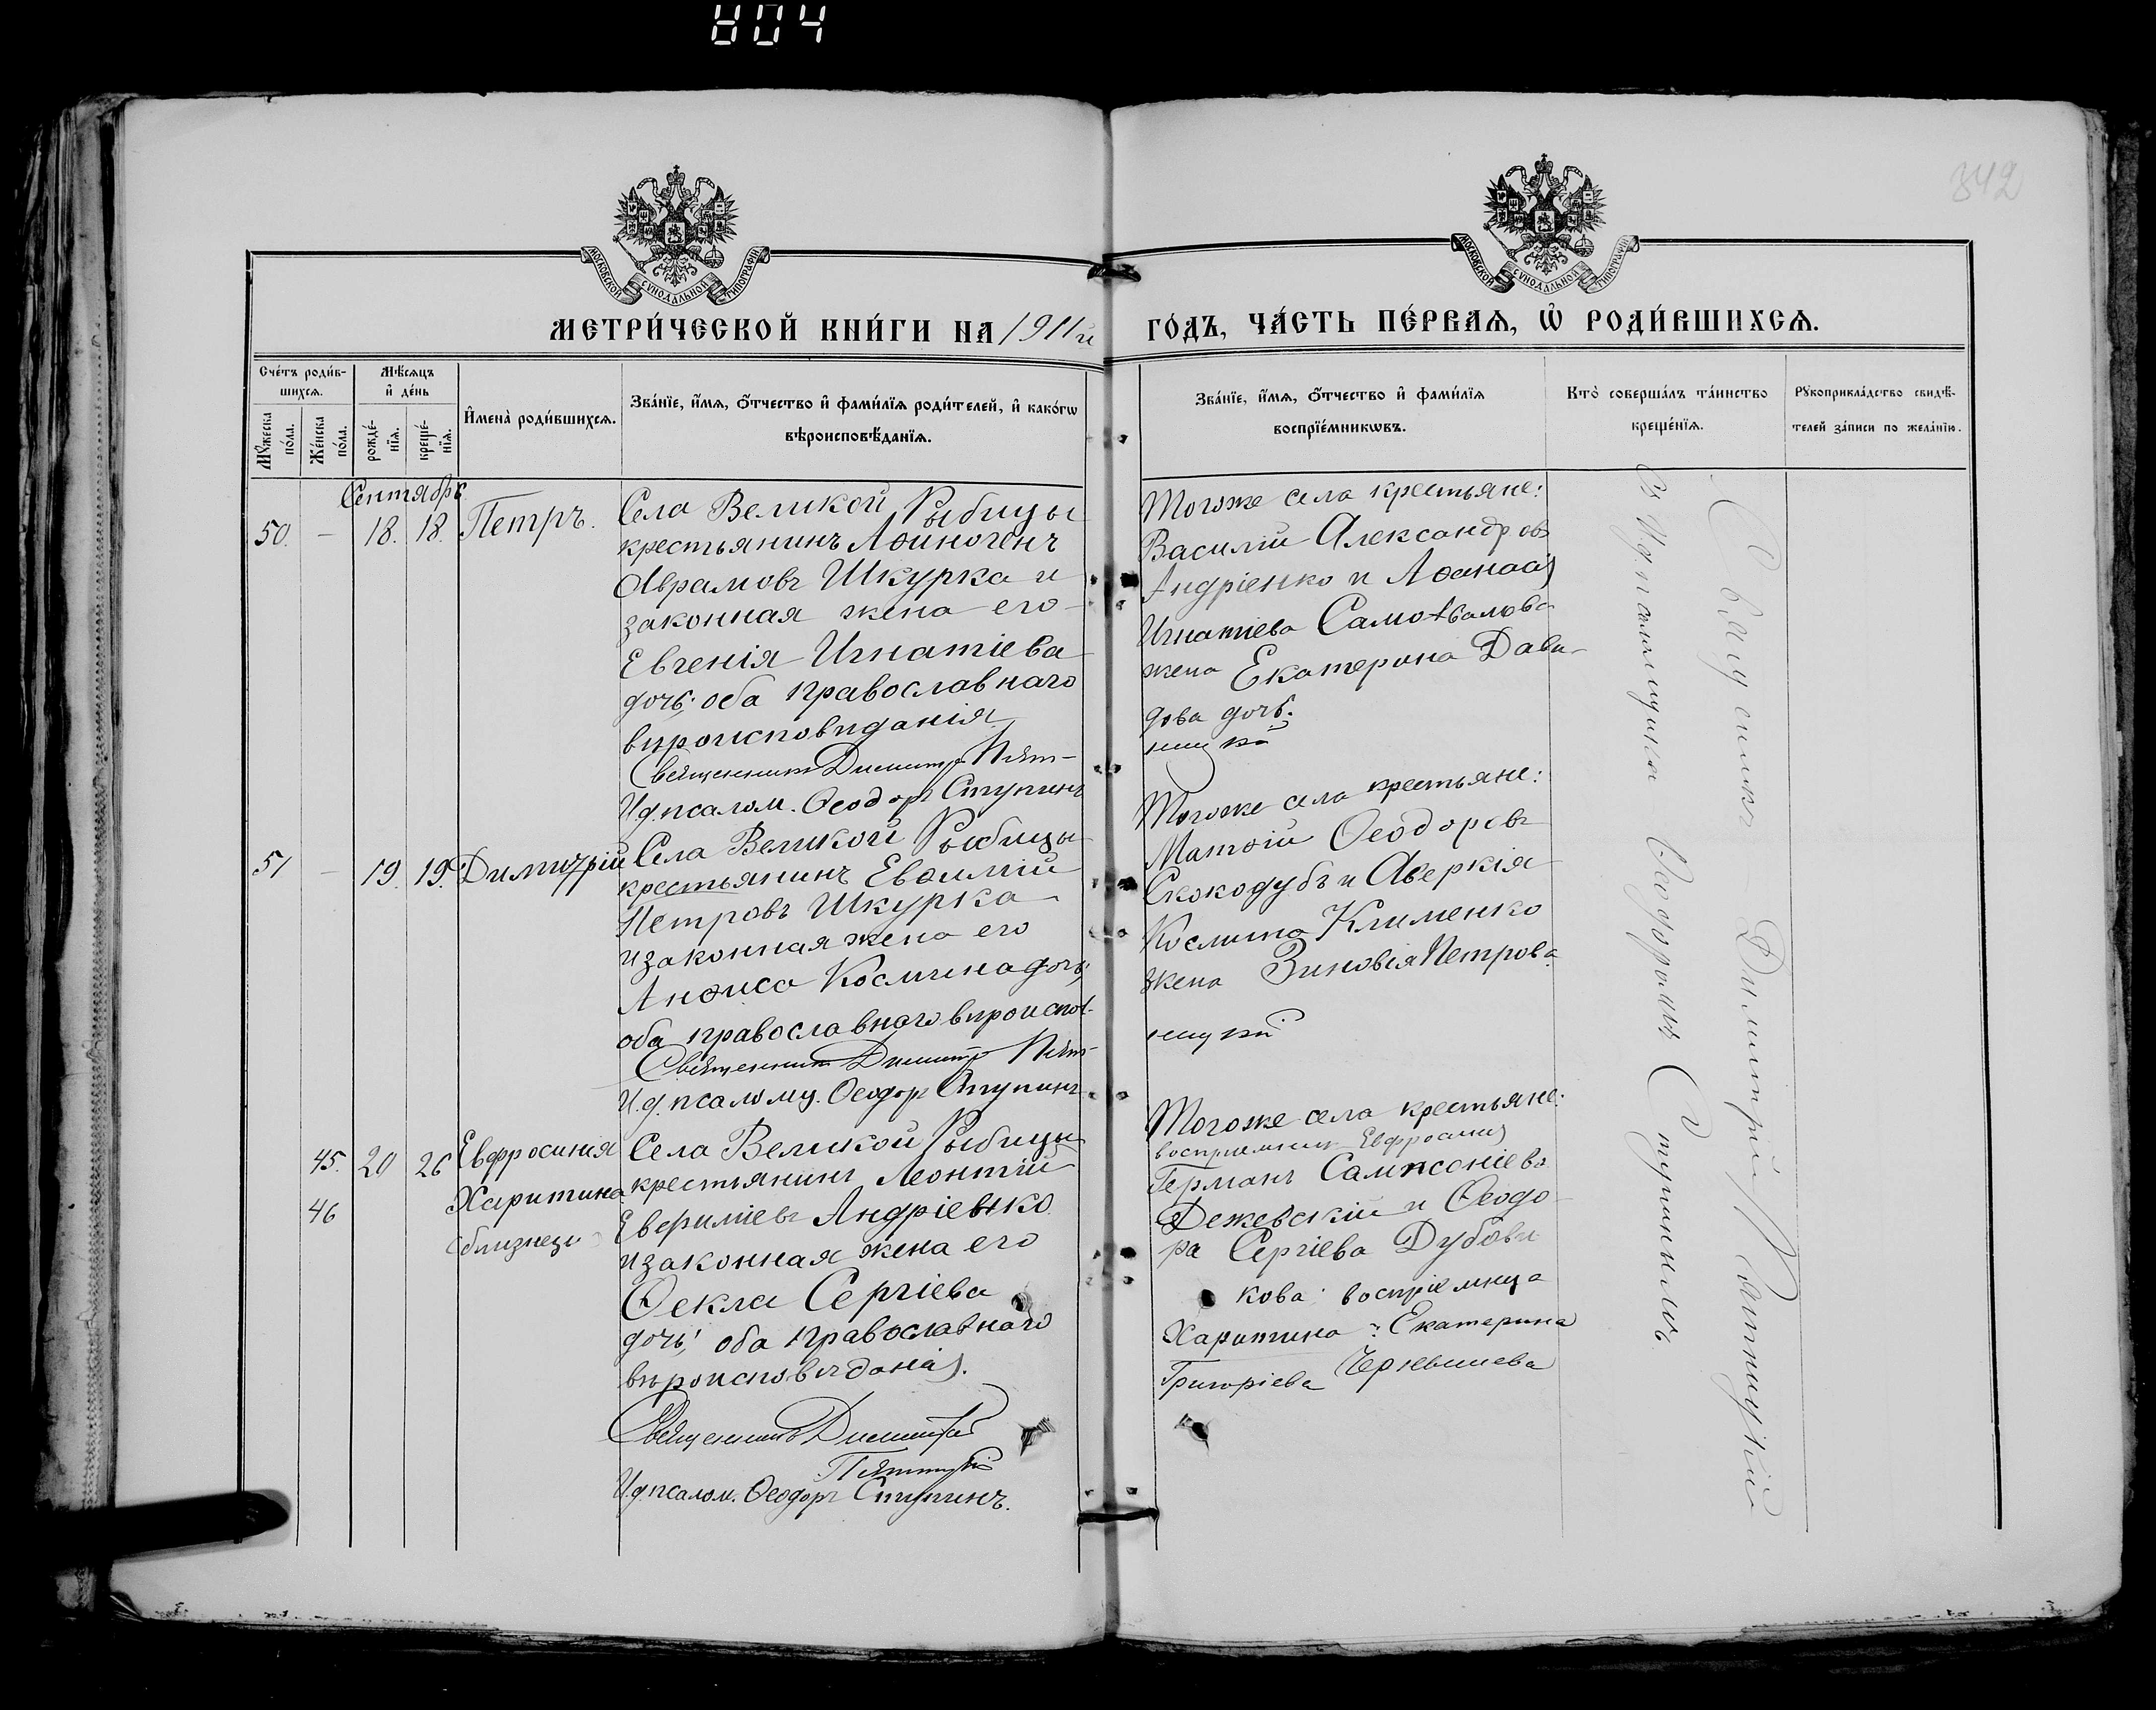 804
342
МОСКОВСКОЙ СѴНОДАЛЬНОЙ ТИПОГРАФІИ
МОСКОВСКОЙ СѴНОДАЛЬНОЙ ТИПОГРАФІИ
МЕТРИ́ЧЕСКОЙ КНИ́ГИ НА 1911й ГО́ДЪ, ЧА́СТЬ ПЕ́РВАѦ, Ѽ РОДИ́ВШИХСѦ.
Сче́тъ роди́в-
шихсѧ.
Мꙋ́жеска по́ла.
Же́нска по́ла.
Мѣ́сѧцъ
и҆ де́нь
рожде́-
нїѧ.
креще́-
нїѧ.
И҆мена̀ роди́вшихсѧ.
Зва́нїе, и҆́мѧ, ѻ҆́тчество и҆ фами́лїѧ роди́телей, и҆ како́гѡ
вѣроисповѣ́данїѧ.
Зва́нїе, и҆́мѧ, ѻ҆́тчество и҆ фами́лїѧ
воспрїе́мникѡвъ.
Кто̀ соверша́лъ та́инство
креще́нїѧ.
Рꙋкоприкла́дство свидѣ́-
телей за́писи по жела́нїю.
Сентябрь
50. – 18. 18. Петръ.
Села Великой Рыбицы
крестьянинъ Аѳиногенъ
Аврамовъ Шкурка и
законная жена его
Евгенія Игнатіева
дочь; оба православнаго
вѣроисповѣданія
Священникъ Димитр. Пят-
И.д.псалом. Ѳеодоръ Ступинъ
Тогоже села крестьяне:
Василій Александровъ
Андріенко и Аѳанасія
Игнатіева Самохвалова
жена Екатерина Дави-
дова дочь.
ницкій
51 – 19. 19. Димитрій
Села Великой Рыбицы
крестьянинъ Евѳимій
Петровъ Шкурка
и законная жена его
Анѳиса Космина дочь;
оба православнаго вѣроиспов.
Священникъ Димитр. Пят-
И.д.псаломщ. Ѳеодоръ Ступинъ
Тогоже села крестьяне:
Матѳій Ѳеодоровъ
Скокодубъ и Аверкія
Космина Клименко
жена Зиновія Петрова
ницкій
45. 20 26 Евфросинія
46 Харитина
близнецы
Села Великой Рыбицы
крестьянинъ Леонтій
Андріенко
и законная жена его
Ѳекла Сергіева
дочь; оба православнаго
вѣроисповѣданія.
Священникъ Димитрій
Пятницкій
И.д.псалом. Ѳеодоръ Ступинъ.
Тогоже села крестьяне:
воспріемники Евфросиніи
Германъ Сампсоніевъ
Дежевскій и Ѳеодо-
ра Сергіева Дубови-
кова воспріемница
Харитина: Екатерина
Григоріева Чернышева
Священникъ Димитрій Пятницкій
съ И.д. псаломщика Ѳеодоромъ Ступинымъ.